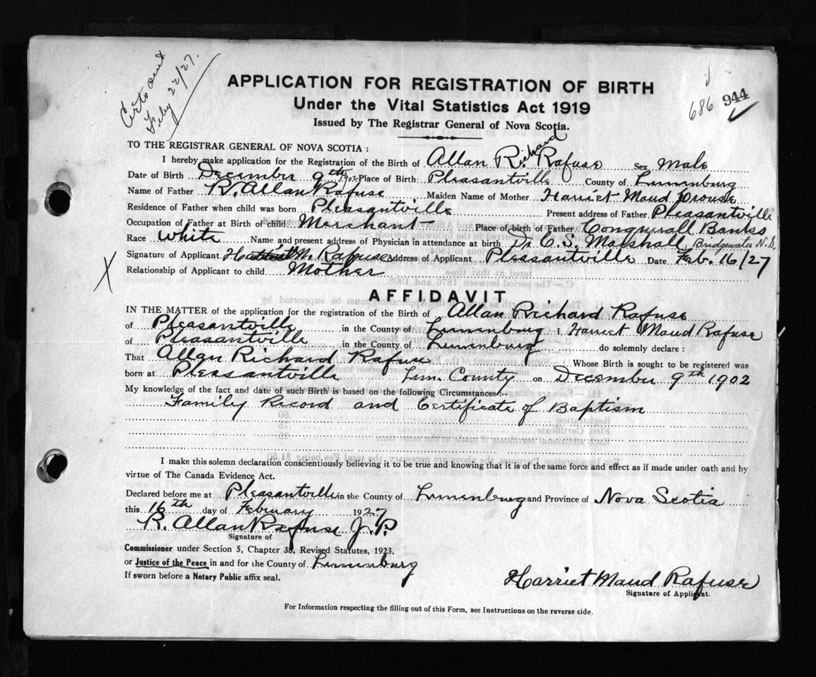 Certs sent
Feby 22/27.
686 944
APPLICATION FOR REGISTRATION OF BIRTH
Under the Vital Statistics Act 1919
Issued by The Registrar General of Nova Scotia.
TO THE REGISTRAR GENERAL OF NOVA SCOTIA :
I hereby make application for the Registration of the Birth of Allan Richard Rafuse Sex Male
Date of Birth December 9th 1902 Place of Birth Pleasantville County of Lunenburg
Name of Father R. Allan Rafuse Maiden Name of Mother Harriet Maud
Residence of Father when child was born Pleasantville Present address of Father Pleasantville
Occupation of Father at Birth of child Merchant Place of birth of Father Conquerall Banks
Race White Name and present address of Physician in attendance at birth Dr C. S. Marshall, Bridgewater N.S.
Signature of Applicant. M. Rafuse Address of Applicant Pleasantville Date Feb. 16/27
Relationship of Applicant to child Mother
X
AFFIDAVIT
IN THE MATTER of the application for the registration of the Birth of Allan Richard Rafuse
of Pleasantville in the County of Lunenburg I, Harriet Maud Rafuse
of Pleasantville in the County of Lunenburg do solemnly declare :
That Allan Richard Rafuse Whose Birth is sought to be registered was
born at Pleasantville Lun. County on December 9th 1902
My knowledge of the fact and date of such Birth is based on the following Circumstances:
Family Record and Certificate of Baptism
I make this solemn declaration conscientiously believing it to be true and knowing that it is of the same force and effect as if made under oath and by
virtue of The Canada Evidence Act.
Declared before me at Pleasantville in the County of Lunenburg and Province of Nova Scotia
this 16th day of February 1927
R. Allan Rafuse J.P.
Signature of
Commissioner under Section 5, Chapter 38, Revised Statutes, 1923.
or Justice of the Peace in and for the County of Lunenburg
If sworn before a Notary Public affix seal.
Harriet Maud Rafuse
Signature of Applicant.
For Information respecting the filling out of this Form, see Instructions on the reverse side.